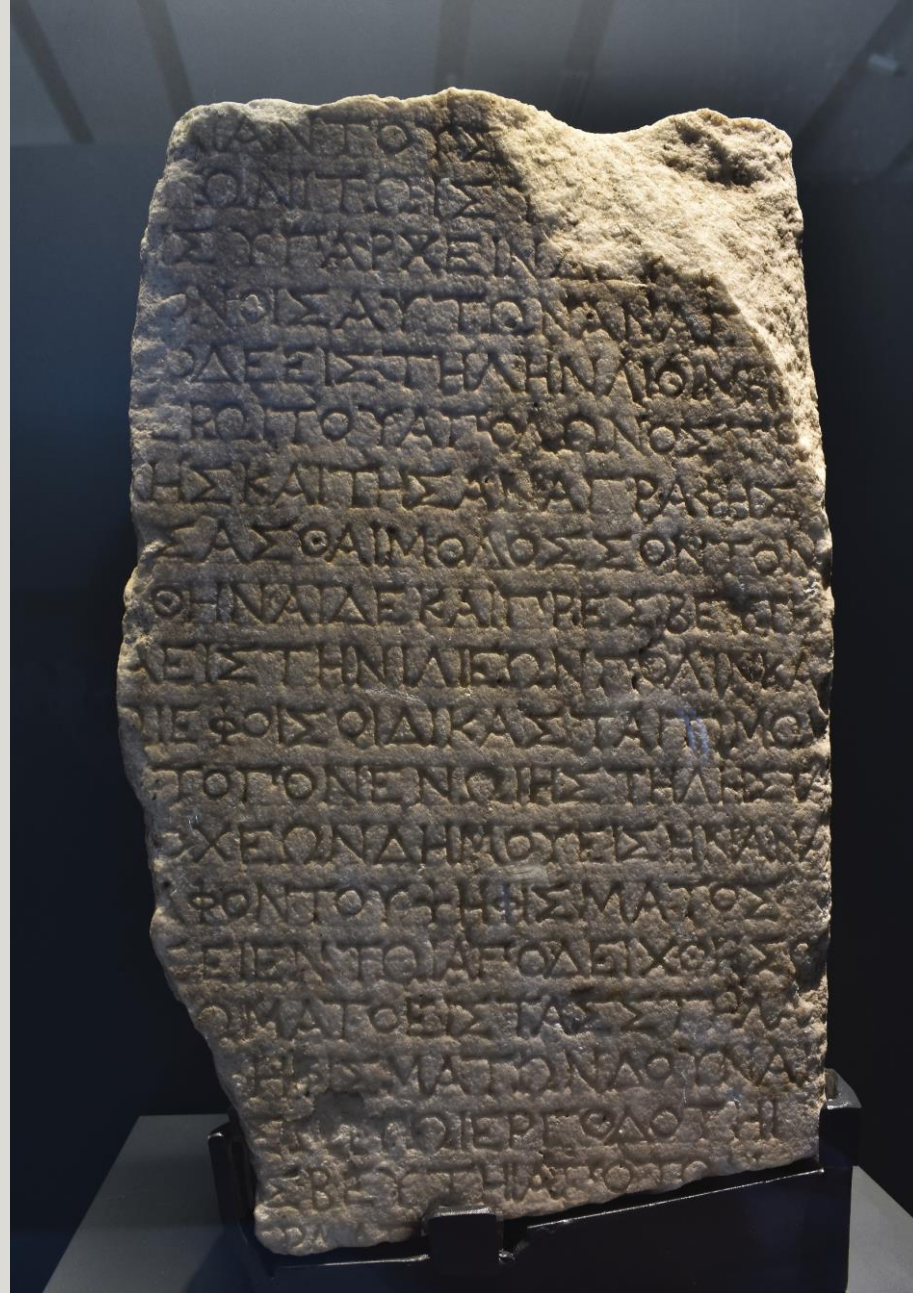 ΙΑΝΤΟΥΣ
ΩΝΙΤΟΙΣ
ΙΣΥΠΑΡΧΕΙΝ
ΟΝΟΙΣΑΥΤΩΝΑΝΑΓ
ΟΔΕΞΙΣΤΗΛΗΝΛΙΘΙΝ
ΕΡΩΙΤΟΥΑΠΟΛΩΝΟΣ
ΛΗΣΚΑΙΤΗΣΑΝΑΓΡΑΦΗΣ
ΣΑΣΘΑΙΜΟΛΟΣΣΟΝΤΟΝ
ΘΗΝΑΙΔΕΚΑΙΠΡΕΣΒΕΥΤΗ
ΛΕΙΣΤΗΝΙΛΙΕΩΝΠΟΛΙΝΚΑ
ΙΕΦΟΙΣΟΙΔΙΚΑΣΤΑΙΠ
ΤΟΠΟΝΕΝΩΙΗΣΤΗΛΗΣ
ΟΧΕΩΝΔΗΜΟΥΕΙΣΗΝΑΝΑ
ΑΦΟΝΤΟΥΨΗΦΙΣΜΑΤΟΣ
ΕΙΕΝΤΩΙΑΠΟΔΕΙΧΘΕ
ΩΜΑΑΠΟΕΙΣΤΑΣΣΤΗΛΑ
ΗΦΙΣΜΑΤΩΝΔΟΥΝΑ
ΩΙΕΡΓΟΔΟΤΗΙ
ΣΒΕΥΤΗΙΑΠΟΤΟ